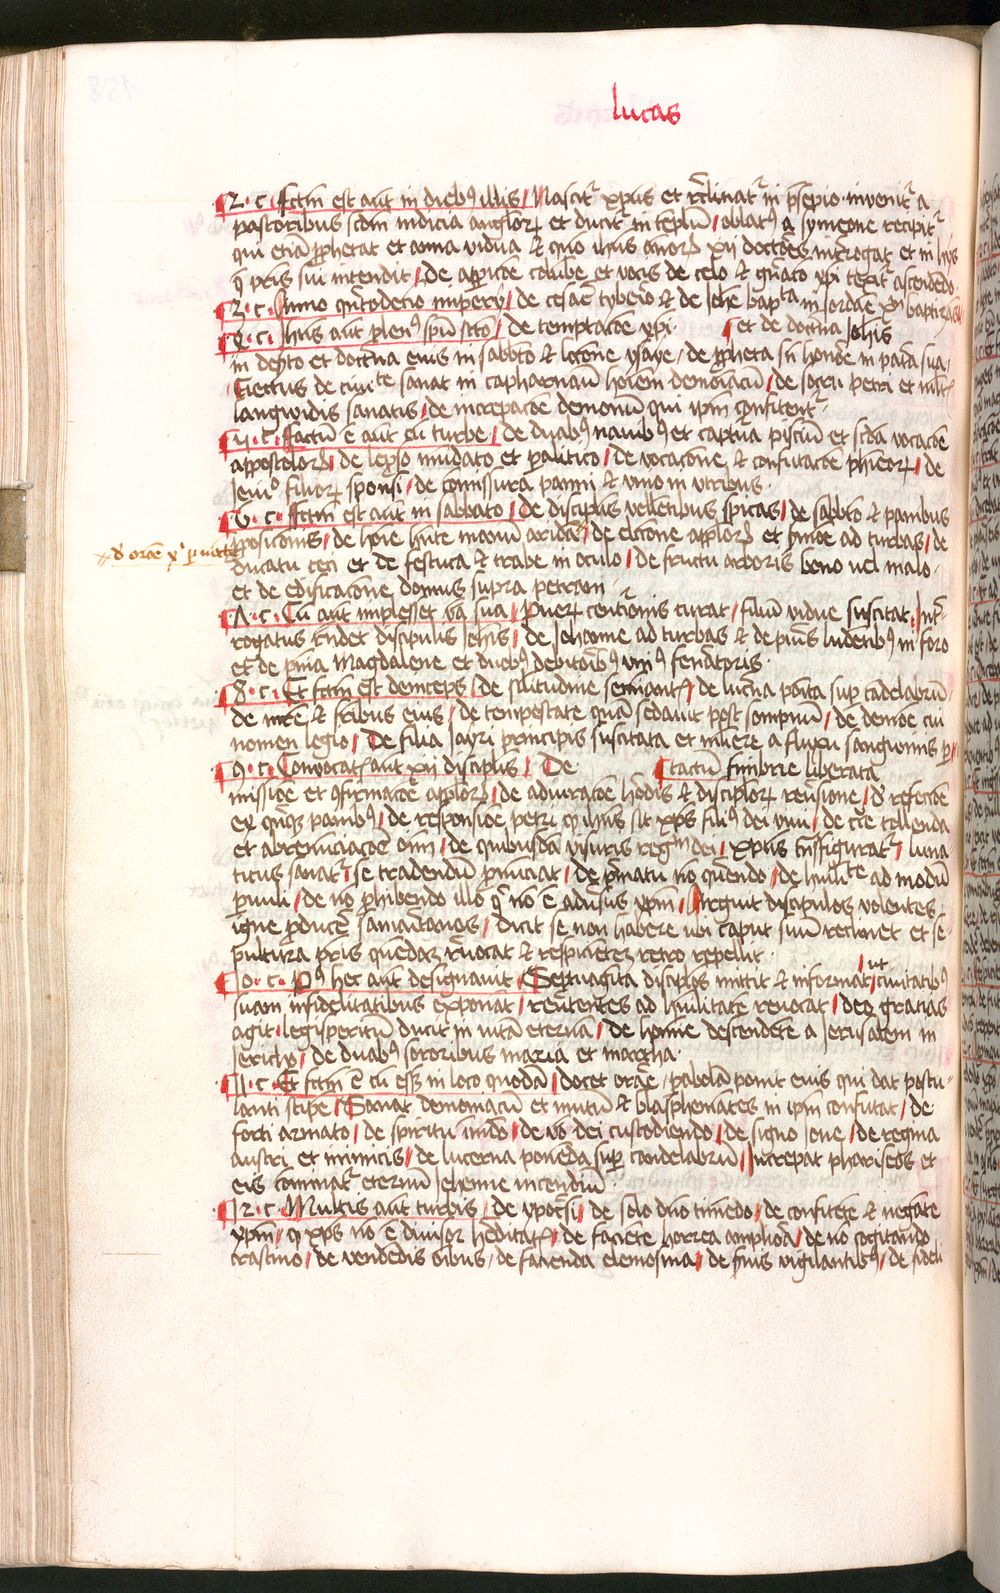 lucas
2 · c · fctm est aut in dieb9 illis / Nascit xpus et reclinat in psepio invenit a
pastoribus scdm indicia anglorz et ducit in teplu / oblat9 a symeone recipit
qui etia pphetat et anna vidua & quo ihus annorz xii doctores interrogat et in hijs
q pris sui intendit / de apparicoe colube et vocis de celo &
3 · c · Anno quitodecio imperij / de cesae tyberio & de Johe bapta in Jordae xpi baptizas
4 · c · Ihus aut plen9 spu scto / de temptacoe xpi · et de doctina Johis
in depto et doctina eius in sabbto & lectone ysaye / de ppheta sn honoe in patria sua /
Eiectus de civite sanat in capharnau hoiem demoniacu / de socru petri et mlt
langwidis sanatis / de increpacoe demoniu qui ipm confitent
5 · c · Factu e aut cu turbe / de duab9 navib9 et captura pisciu et scda vocacoe
appostolorz / de leproso mudato et paralitico / de vocacone & confutacoe phiseorz / de
Jeiunio filiorz sponsi / de comissura panni & vino in utribus ·
6 · c · fctm est aut in sabbato / de discipulis vellentibus spicas / de sabbto & panibus
pposicionis / de hoie hnte manu arida / de elctone applorz et smoe ad turbas / de
ducatu ceci et de festuca & trabe in oculo / de fructu arboris bono vel malo ·
et de edificacone domus supra petram
7 · c · Cu aut implesset vba sua / Pueru centurionis curat / filiu vidue suscitat / Int
rogatus respondet discipulis Johis / de Johanne ad turbas & de pueris ludentib9 in foro
et de pnia Magdalene et duob9 debitorib9 uni9 feneratoris ·
8 · c · Et fctm est deinceps / de silitudine seminant / de lucna posita sup cadelabru /
de mre & fribus eius / de tempestate qua sedavit post sompnu / de demoe cui
nomen legio / De filia Jayri principis suscitata et muliere a fluxu sanguinis p
9 · c · Convocatis aut xii discipulis / De tactu fimbrie liberata
missioe et confirmacoe applorz / de admiracoe herodis & disciplorz reversione / de refectoe
ex quinqz panib9 / de responsioe petri q ihus sit xps fili9 dei vivi / de cruce tollenda
et abrenunciacoe oim / de quibusda visuris regnu dei / xpus transfigurat / luna
ticus sanat / se tradendu pnuciat / de primatu no querendo / de humilite ad modu
parvuli / de no phibendo illo q no e adversus ipm / Arguit discipulos volentes
igne producere samaritanos / dicit se non habere ubi caput suu reclinet et se
pultura pris quedaz revocat & respicietez retro repellit ·
10 · c · P9 hec aut designavit / Septuagita disciplos mittit & informat / ut civitatib9
suam infidelitatibus exponat / reveretes ad humilitate revocat / deo gracias
agit / legisperitu ducit in vita eterna / de homie descendete a Jerusalem in
Jericho / de duab9 sororibus maria et martha ·
11 · c · Et fctm e cu esset in loco quoda / docet orare / pabola ponit eius qui dat postu
lanti stipe / Sanat demoniacu et mutu & blasphemates in ipm confutat / de
forti armato / de spiritu inmudo / de vbo dei custodiendo / de signo Jone / de regina
austri et ninivitis / de lucerna ponenda sup candelabru / Increpat phariseos et
eis cominat eternu Jehenne incendiu
12 · c · Multis aut turbis / de ypocrisi / de solo deo timedo / de confitete & negate
ipm / q xps no e divisor hereditatis / de faciete horrea ampliora / de no cogitando
crastino / de vendedis oibus / de facienda elemosina / de suis vigilantib9 / de fideli